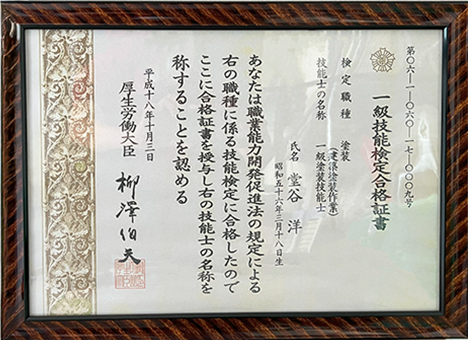 第〇六―一―〇六〇―一七―〇〇〇九号
一級技能検定合格証書
検定職種 塗装
(建築塗装作業)
技能士の名称 一級塗装技能士
氏名 堂谷 洋
昭和五十六年三月十八日生
あなたは職業能力開発促進法の規定による
右の職種に係る技能検定に合格したので
ここに合格証書を授与し右の技能士の名称を
称することを認める
平成十八年十月三日
厚生労働大臣 柳澤伯夫